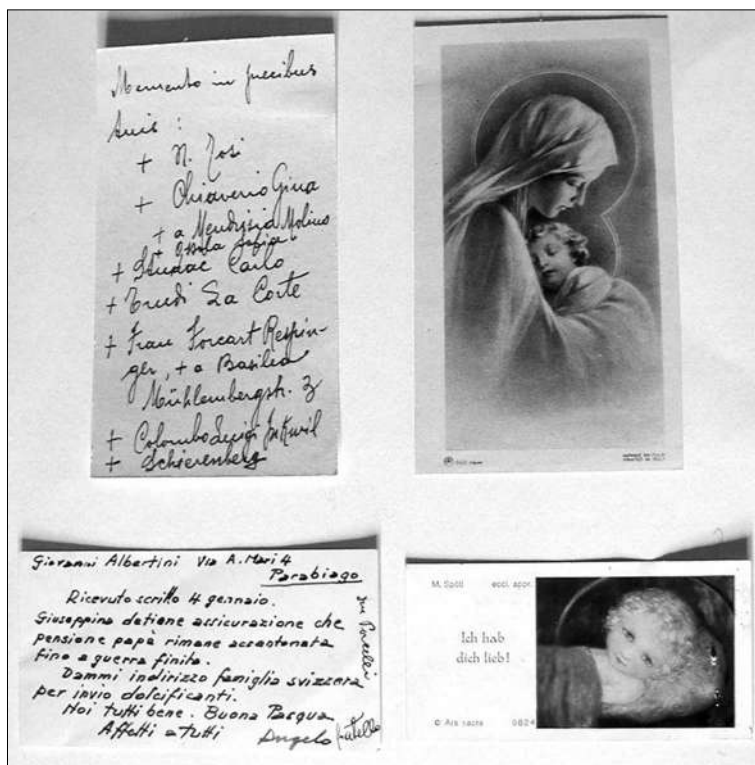 Memento in precibus
tuis :
+ N. Tosi
+ Chiaverio Gina
+ a Mendrisio Molino
+ Sofia
+ Carlo
+ Trudi La Corte
+ Frau Forcart Respin-
ger, + a Basilea
Mühlenbergstr. 3
+ Colombo Luigi Inkwil
+ Schierenberg
Giovanni Albertini Via A. Mari 4
Parabiago
Ricevuto scritto 4 gennaio.
Giuseppina detiene assicurazione che
pensione papà rimane accantonata
fino a guerra finita.
Dammi indirizzo famiglia svizzera
per invio dolcificanti.
Noi tutti bene. Buona Pasqua
Affetti a tutti
Angelo fratello
M. Spötl eccl. appr.
Ich hab
dich lieb!
© Ars sacra 0824